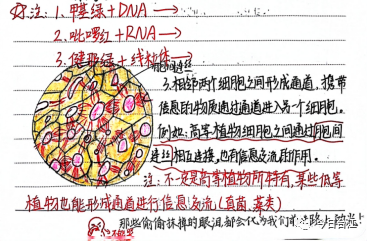 注：1.甲基绿+DNA→
2.吡啰红+RNA→
3.健那绿+线粒体→
胞间连丝
3.相邻两个细胞之间形成通道，携带
信息的物质通过通道进入另一个细胞。
例如：高等植物细胞之间通过胞间
连丝相互连接，也有信息交流的作用。
注：不一定是高等植物所特有，某些低等
植物也能形成通道进行信息交流（真菌、藻类）
那些偷偷抹掉的眼泪都会化为我们前